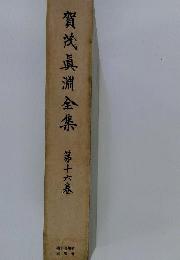 賀茂眞淵全集
第十六巻